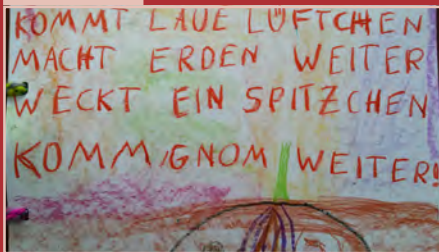 KOMMT LAUE LÜFTCHEN
MACHT ERDEN WEITER
WECKT EIN SPITZCHEN
KOMM GNOM WEITER!